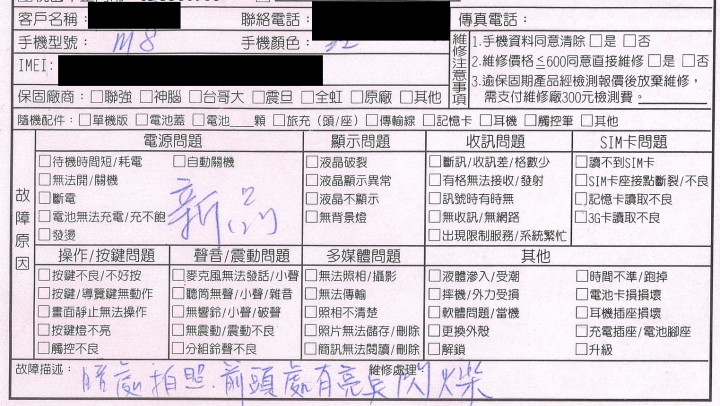 客戶名稱： 聯絡電話： 傳真電話：
手機型號： M8 手機顏色：
IMEI:
維修注意事項
1.手機資料同意清除 □是 □否
2.維修價格≦600同意直接維修 □是 □否
3.逾保固期產品經檢測報價後放棄維修，
需支付維修廠300元檢測費。
保固廠商：□聯強 □神腦 □台哥大 □震旦 □全虹 □原廠 □其他
隨機配件：□單機版 □電池蓋 □電池___顆 □旅充（頭/座）□傳輸線 □記憶卡 □耳機 □觸控筆 □其他
故障原因
電源問題
□待機時間短/耗電 □自動關機
□無法開/關機
□斷電
□電池無法充電/充不飽
□發燙
新品
顯示問題
□液晶破裂
□液晶顯示異常
□液晶不顯示
□無背景燈
收訊問題
□斷訊/收訊差/格數少
□有格無法接收/發射
□訊號時有時無
□無收訊/無網路
□出現限制服務/系統繁忙
SIM卡問題
□讀不到SIM卡
□SIM卡座接點斷裂/不良
□記憶卡讀取不良
□3G卡讀取不良
操作/按鍵問題
□按鍵不良/不好按
□按鍵/導覽鍵無動作
□畫面靜止無法操作
□按鍵燈不亮
□觸控不良
聲音/震動問題
□麥克風無法發話/小聲
□聽筒無聲/小聲/雜音
□無響鈴/小聲/破聲
□無震動/震動不良
□分組鈴聲不良
多媒體問題
□無法照相/攝影
□無法傳輸
□照相不清楚
□照片無法儲存/刪除
□簡訊無法閱讀/刪除
其他
□液體滲入/受潮 □時間不準/跑掉
□摔機/外力受損 □電池卡損損壞
□軟體問題/當機 □耳機插座損壞
□更換外殼 □充電插座/電池腳座
□解鎖 □升級
故障描述： 維修處理：
暗處拍照．前頭處有亮点閃爍